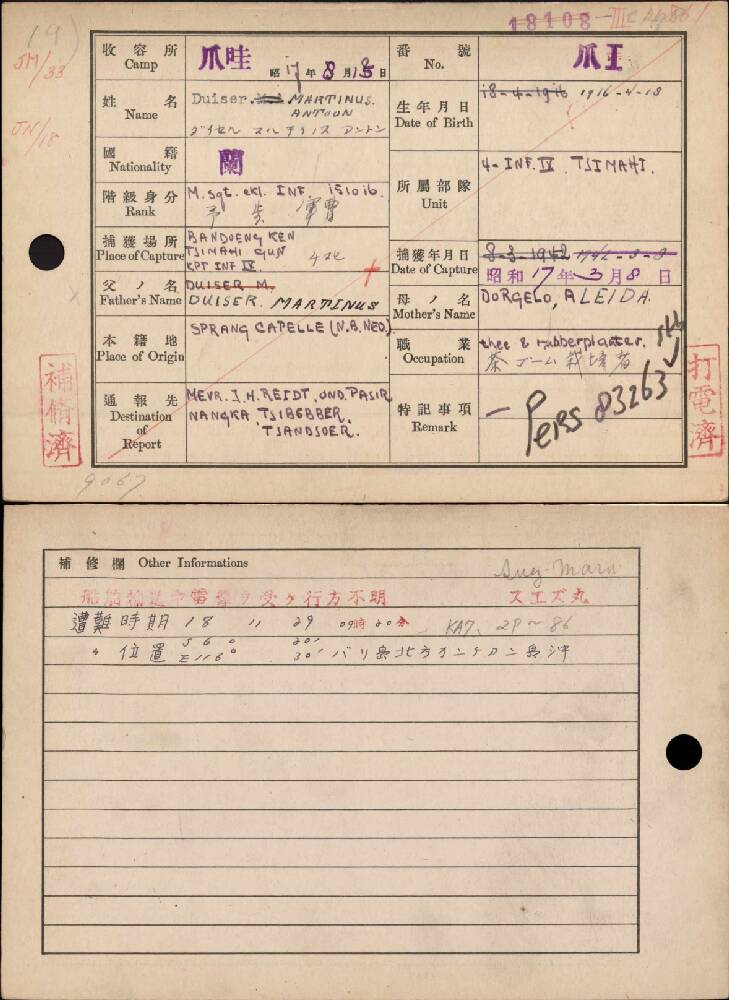 18108-III
(9)
JM/33
JN/18
收容所 Camp 爪哇 昭17年8月15日
番號 No. 爪 I
姓名 Name Duiser. MARTINUS.
ANTOON
生年月日 Date of Birth 18-4-1916 1916-4-18
國籍 Nationality 蘭
所屬部隊 Unit 4-INF. IV TSIMAHI.
階級身分 Rank M. Sgt. ekl. INF. 151016.
予 歩 軍曹
捕獲場所 Place of Capture BANDOENG KEN
TSIMAHI GUN
KPT INF IV.
捕獲年月日 Date of Capture 8-3-1942 1942-3-8
昭和17年3月8日
父ノ名 Father's Name DUISER M.
DUISER. MARTINUS
母ノ名 Mother's Name DORGELO, ALEIDA.
本籍地 Place of Origin SPRANG CAPELLE (N.B. NED.)
職業 Occupation thee & rubberplanter.
茶 ゴーム 栽培者
通報先 Destination of Report MEVR. J.H. REIDT, OND. PASIR
NANGKA TSIBEBBER
TSANDJOER.
特記事項 Remark —
Pers 83263
補脩濟
打電濟
9067
補修欄 Other Informations
Suez-Maru
船舶輸送中雷撃ヲ受ケ行方不明 スエズ丸
遭難時期 18 11 29 09時20分 KA7. 29~86
〃 位置 S 6° 20'
E 116° 30' バリ島北方カンゲアン島沖